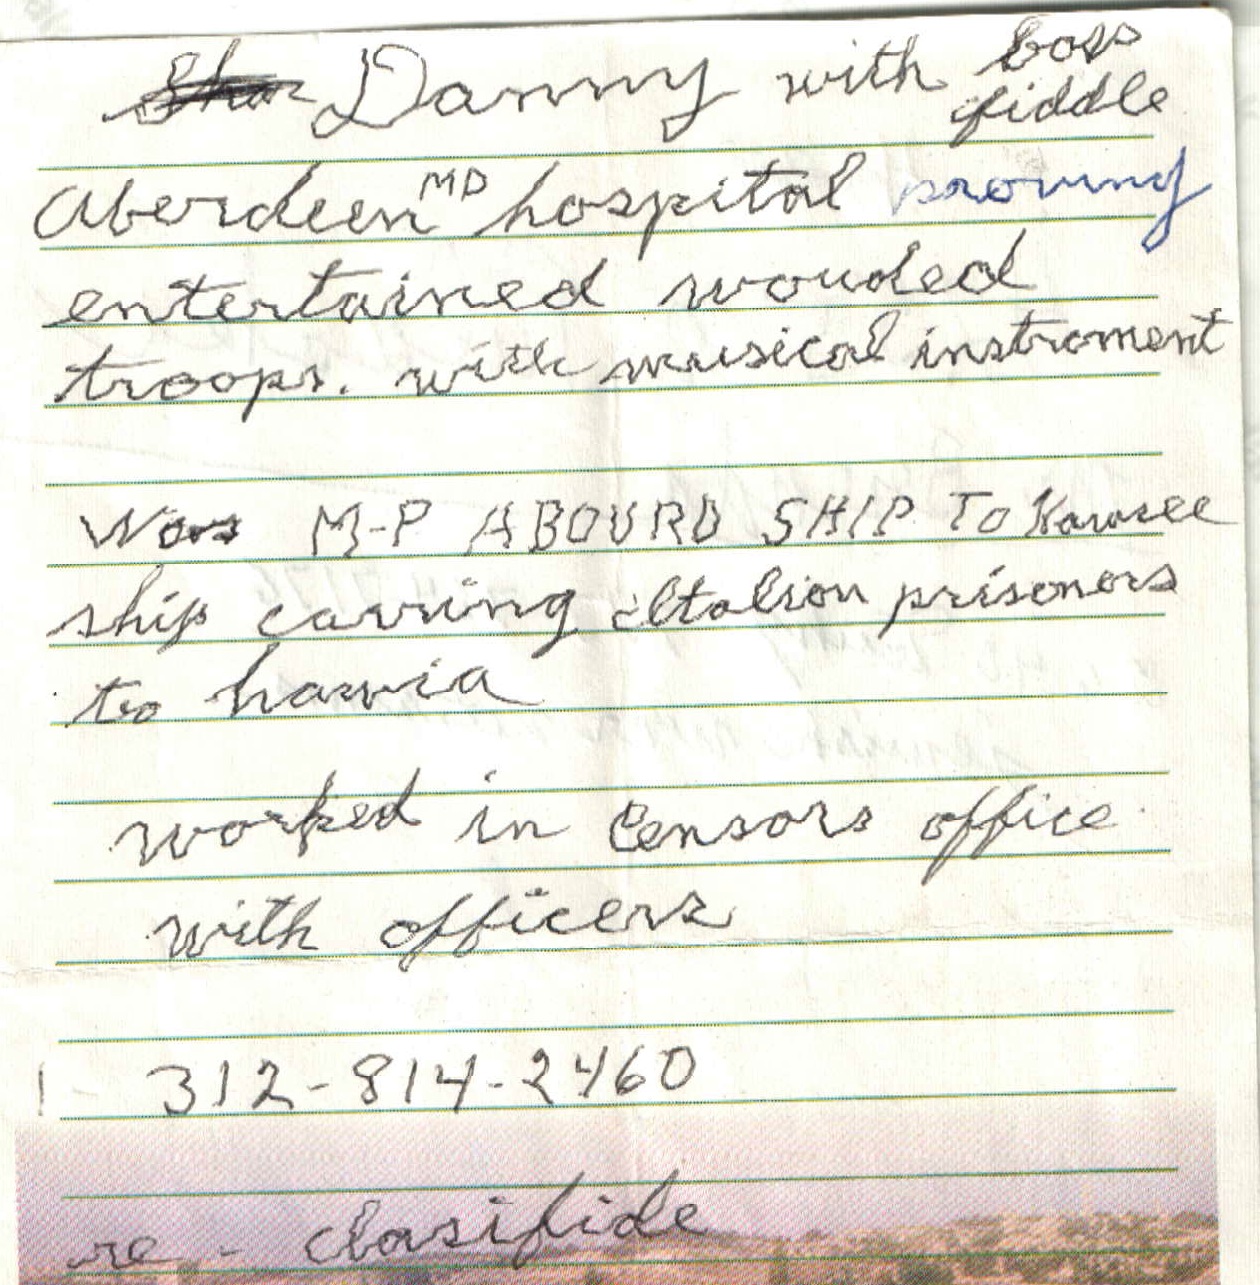 Danny with bass fiddle
Aberdeen MD hospital proving
entertained wouded
troops. with musical instroment
Was M-P ABOURD SHIP TO
ship carring Italion prisonors
to havia
worked in Censors office
with officers
1 - 312-814-2460
re - clasifide